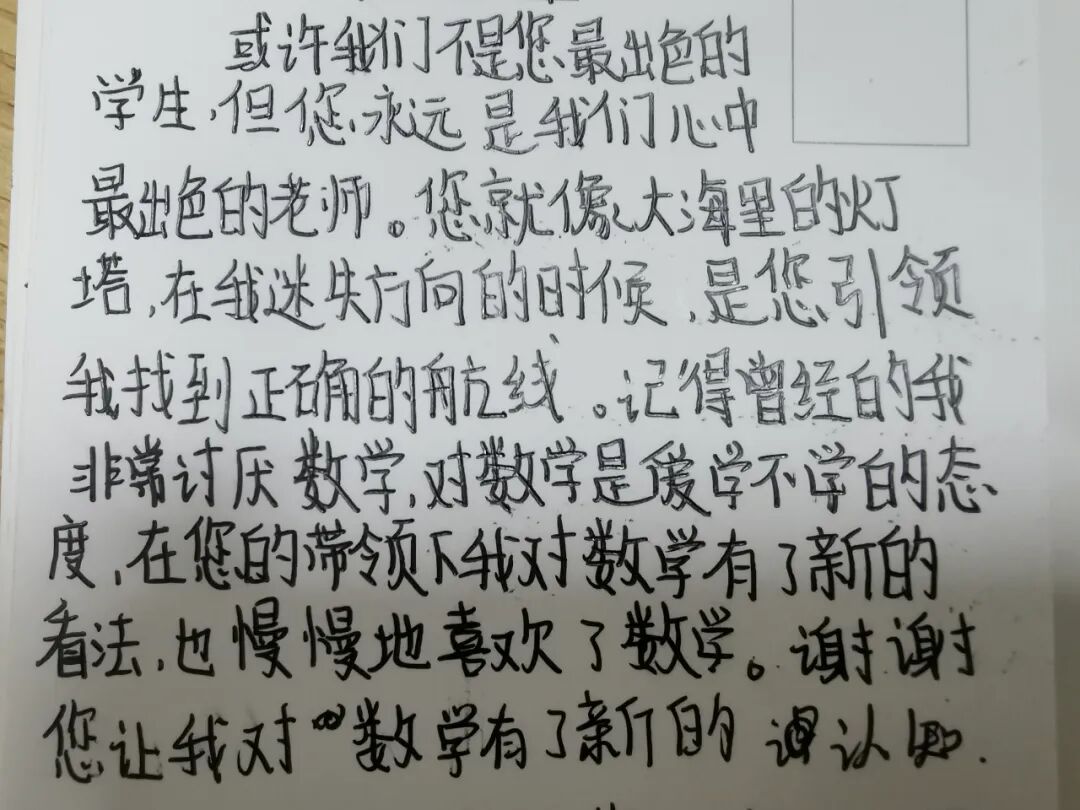 或许我们不是您最出色的
学生,但您永远是我们心中
最出色的老师。您就像大海里的灯
塔,在我迷失方向的时候,是您引领
我找到正确的航线。记得曾经的我
非常讨厌数学,对数学是爱学不学的态
度,在您的带领下我对数学有了新的
看法,也慢慢地喜欢了数学。谢谢
您让我对数学有了新的认知.